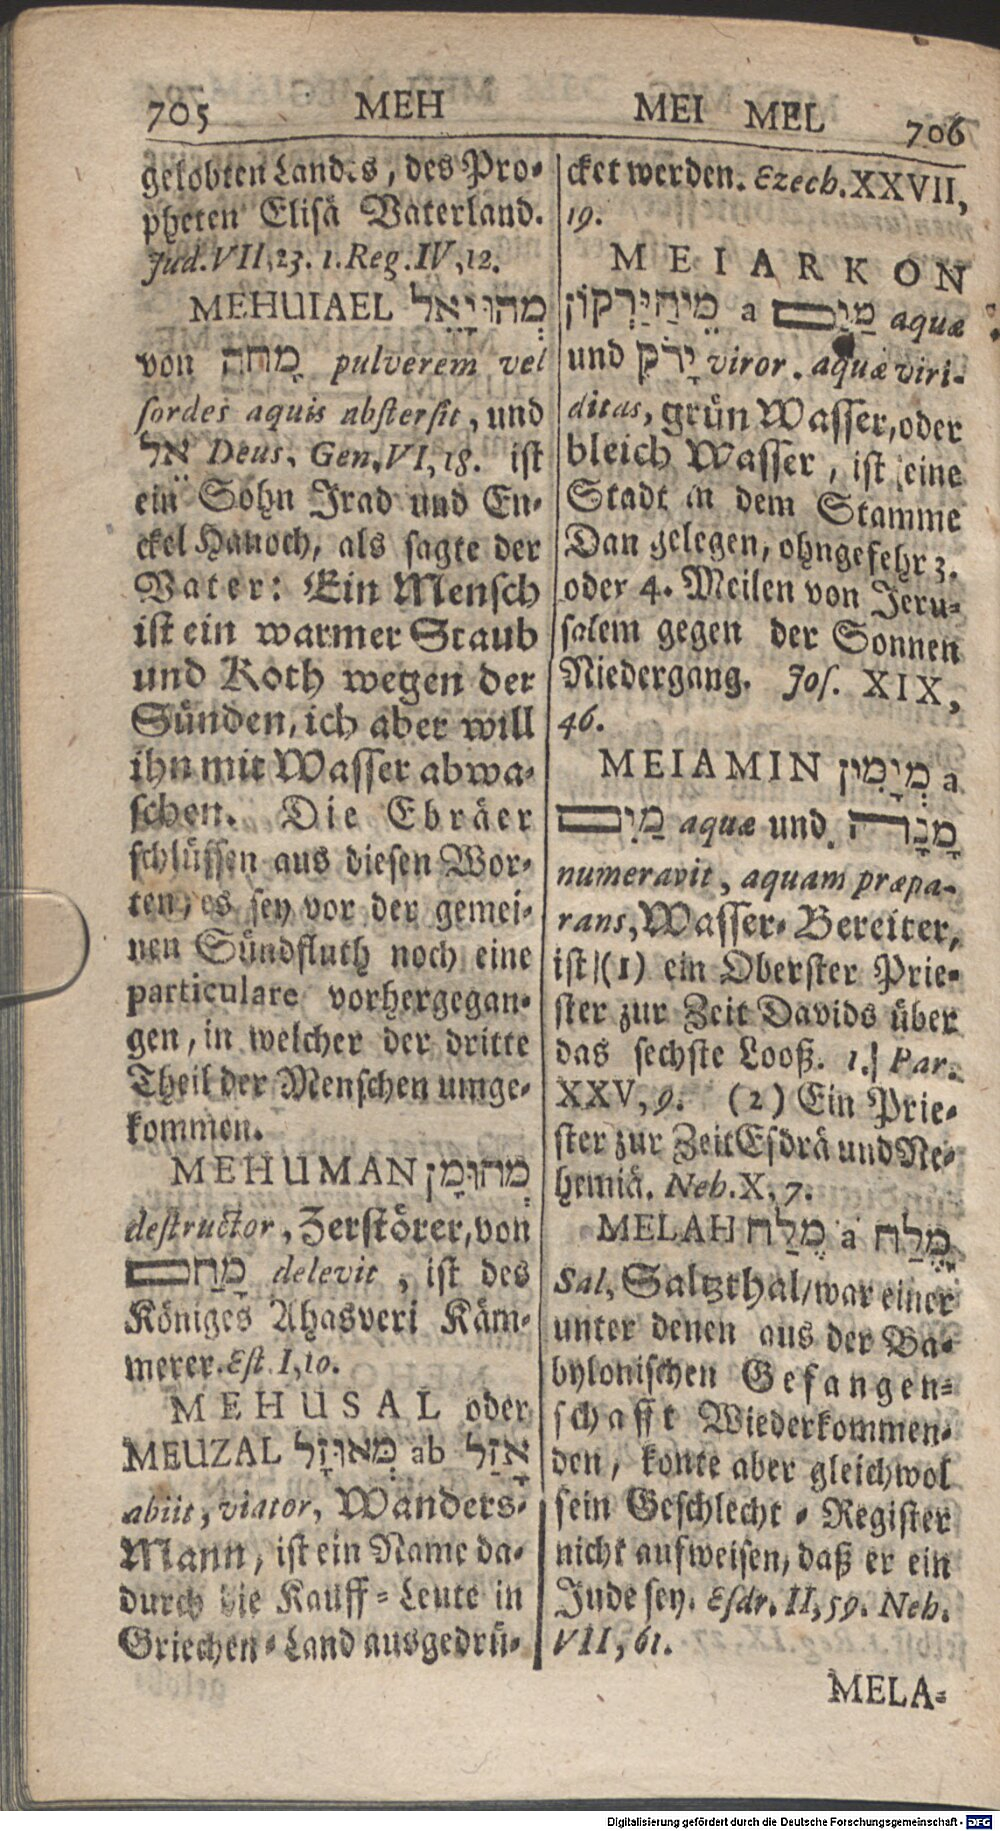 705 MEH MEI MEL 706
gelobten Landes, des Pro-
pheten Elisä Vaterland.
Jud. VII, 23. 1. Reg. IV, 12.
MEHUIAEL מְהוּיָאֵל
von מָחָה pulverem vel
sordes aquis abstersit, und
אֵל Deus, Gen, VI, 18. ist
ein Sohn Irad und En-
ckel Hanoch, als sagte der
Vater: Ein Mensch
ist ein warmer Staub
und Koth wegen der
Sünden, ich aber will
ihn mit Wasser abwa-
schen. Die Ebräer
schlüssen aus diesen Wor-
ten, es sey vor der gemei-
nen Sündfluth noch eine
particulare vorhergegan-
gen, in welcher der dritte
Theil der Menschen umge-
kommen.
MEHUMAN מְהוּמָן
destructor, Zerstörer, von
מָחַם delevit, ist des
Königes Ahasveri Käm-
merer. Est I, 10.
MEHUSAL oder
MEUZAL מְאוּזָל ab אָזַל
abiit, viator, Wanders-
Mann, ist ein Name da-
durch die Kauff-Leute in
Griechen-Land ausgedrü-
cket werden. Ezech. XXVII,
19.
MEIARKON
מֵיהַיַּרְקוֹן a מַיִם aquæ
und יָרֹק viror. aquæ viri-
ditas, grün Wasser, oder
bleich Wasser, ist eine
Stadt in dem Stamme
Dan gelegen, ohngefehr 3.
oder 4. Meilen von Jeru-
salem gegen der Sonnen
Niedergang. Jos. XIX,
46.
MEIAMIN מְיָמִין a
מַיִם aquæ und מָנָה
numeravit, aquam præpa-
rans, Wasser-Bereiter,
ist (1) ein Oberster Prie-
ster zur Zeit Davids über
das sechste Looß. 1. Par.
XXV, 9. (2) Ein Prie-
ster zur Zeit Esdrä und Ne-
hemiä. Neh. X, 7.
MELAH מֶלַח a מֶלַח
Sal, Saltzthal/ war einer
unter denen aus der Ba-
bylonischen Gefangen-
schafft Wiederkommen-
den, konte aber gleichwol
sein Geschlecht-Register
nicht aufweisen, daß er ein
Jude sey. Esdr. II, 59. Neh.
VII, 61.
MELA-
Digitalisierung gefördert durch die Deutsche Forschungsgemeinschaft - DFG